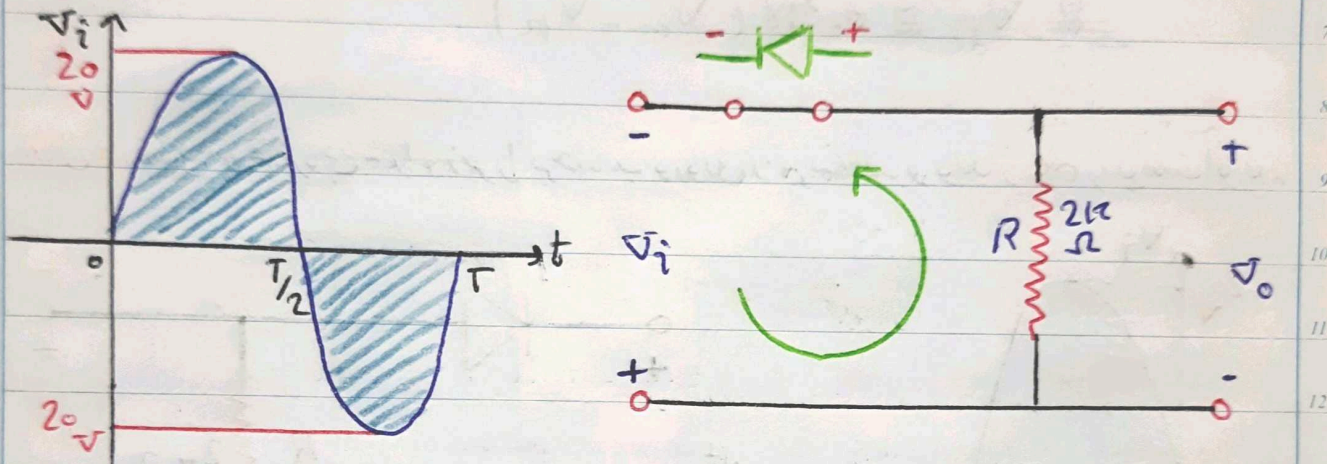 Vi
20
V
0
T/2
T
t
20
V
- +
-
+
Vi
R
2k
Ω
Vo
+
-
7
8
9
10
11
12